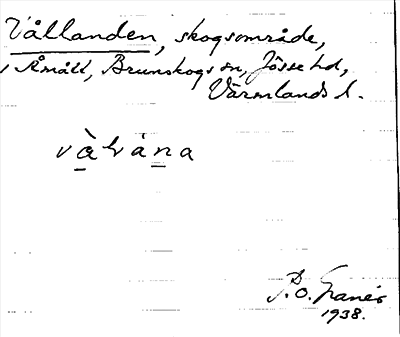 Vållanden, skogsområde,
i Åmått, Brunskogs sn, Jösse hd,
Värmlands l.
vàlána
P.O. Granér
1938.